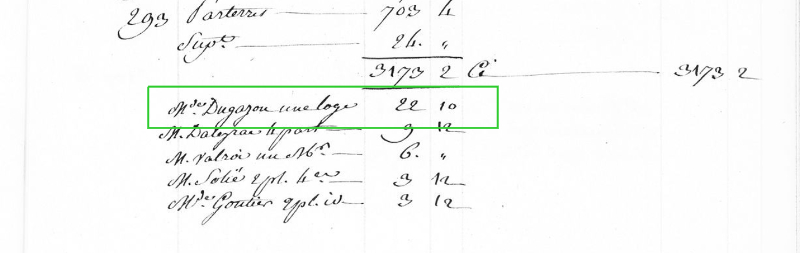 293 Parterres 703 4
Supt. 24. "
3173 2 Ci 3173 2
Mde. Dugazon une loge 22 10
M. Daleyrac 4 part 9 12
M. Valroi un Abr. 6. "
M. Solié 2 pl. 4es 3 12
Mde. Goutier 2 pl. id 3 12